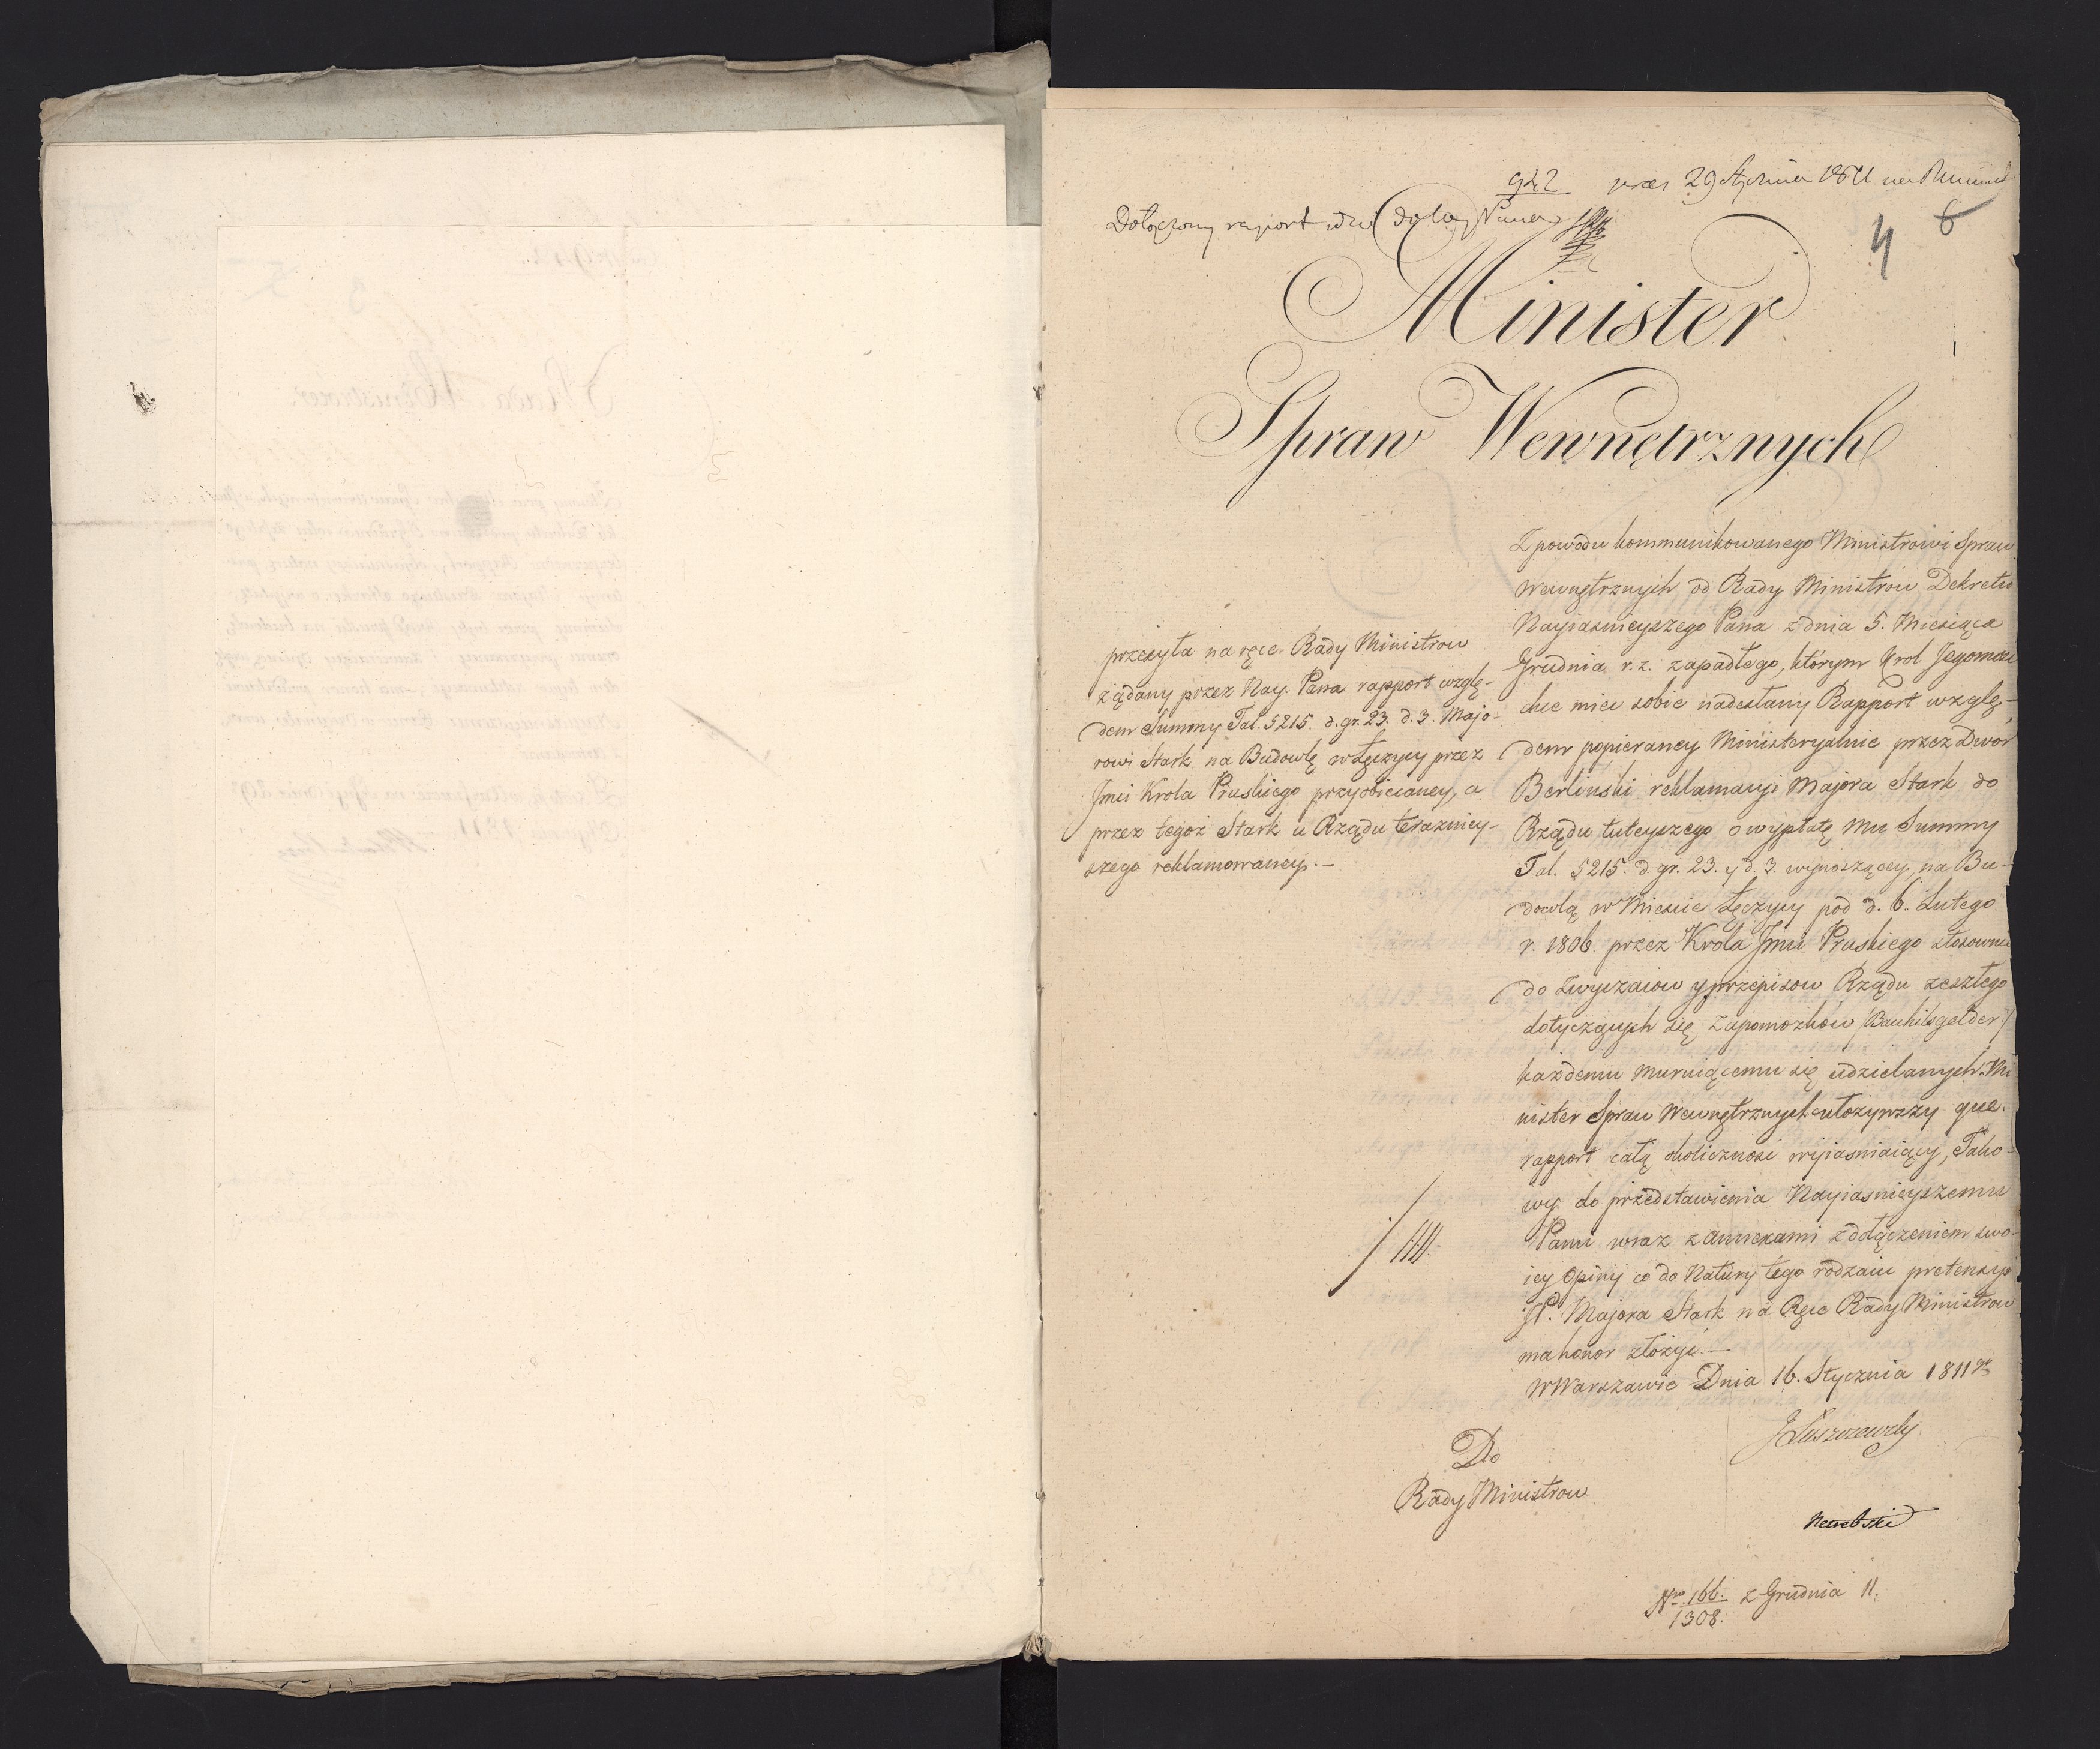 942 29 Stycznia 1811
Dołączony raport
4 6
Minister
Spraw Wewnętrznych
przesyła na ręce Rady Ministrow
żądany przez Nay. Pana rapport wzglę-
dem Summy Tal. 5215. d.gr. 23. d. 3. Majo-
rowi Stark na Budowlę w Łęczycy przez
Jmci Krola Pruskiego przyobiecaney, a
przez tegoż Stark u Rządu terazniey-
szego reklamowaney.-
Z powodu kommunikowanego Ministrowi Spraw
Wewnętrznych od Rady Ministrow Dekretu
Nayiasnieyszego Pana z dnia 5. Miesiąca
Grudnia r. z. zapadłego, którym Krol Jegomość
chce mieć sobie nadesłany Rapport wzglę-
dem popieraney Ministeryalnie przez Dwor
Berlinski reklamacyi Majora Stark do
Rządu tuteyszego o wypłatę mu Summy
Tal. 5215. d. gr. 23. y d. 3. wynoszącey, na Bu-
dowlą w Miescie Łęczycy pod d. 6. Lutego
r. 1806. przez Krola Jmci Pruskiego stosownie
do zwyczaiow y przepisow Rządu zeszłego
dotyczących się zapomozków /Bauhilfsgelder/
każdemu muruiącemu się udzielanych. Mi
nister Spraw Wewnętrznych ułożywszy
rapport całą okoliczność wyiasniaiący, Tako-
wy do przedstawienia Nayiasnieyszemu
Panu wraz z annexami z dołączeniem swo-
iey Opinij co do Natury tego rodzaiu pretensyi
JP. Majora Stark na Ręce Rady Ministrow
ma honor złożyć.-
W Warszawie Dnia 16. Stycznia 1811
JŁuszczewski
Do
Rady Ministrow
Nro. 166. z Grudnia 11.
1308.